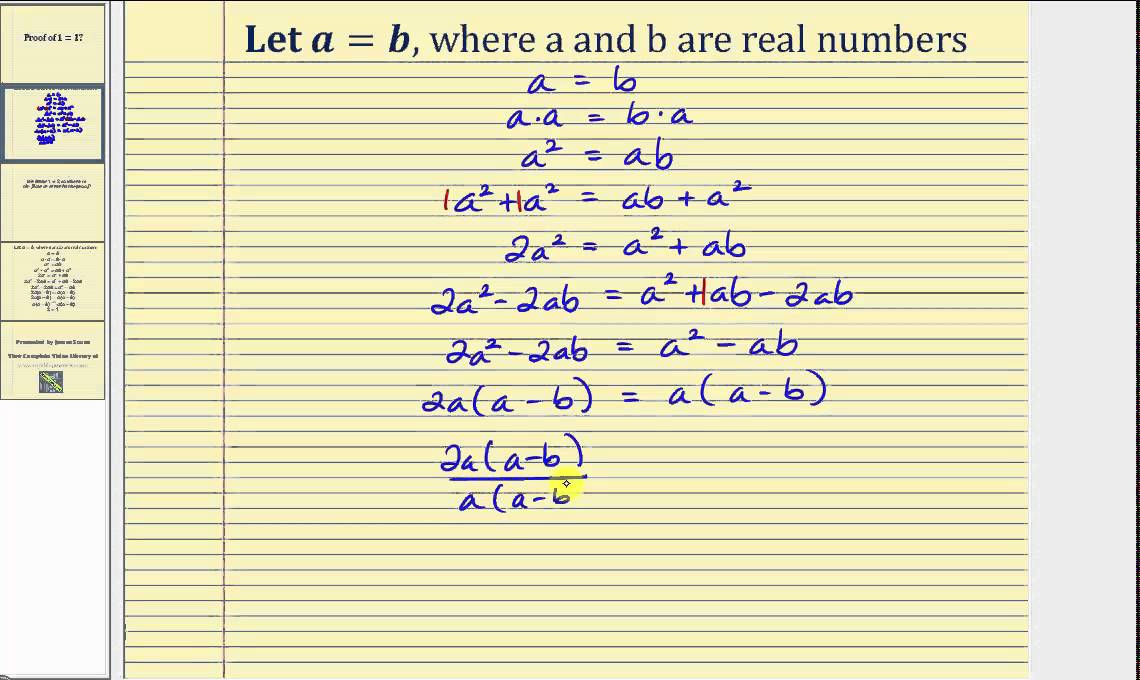 Proof of 1 = 2?
Let a = b, where a and b are real numbers
a = b
a·a = b·a
a² = ab
1a² + 1a² = ab + a²
2a² = a² + ab
2a² - 2ab = a² + 1ab - 2ab
2a² - 2ab = a² - ab
2a(a - b) = a(a - b)
2a(a-b)
a(a-b